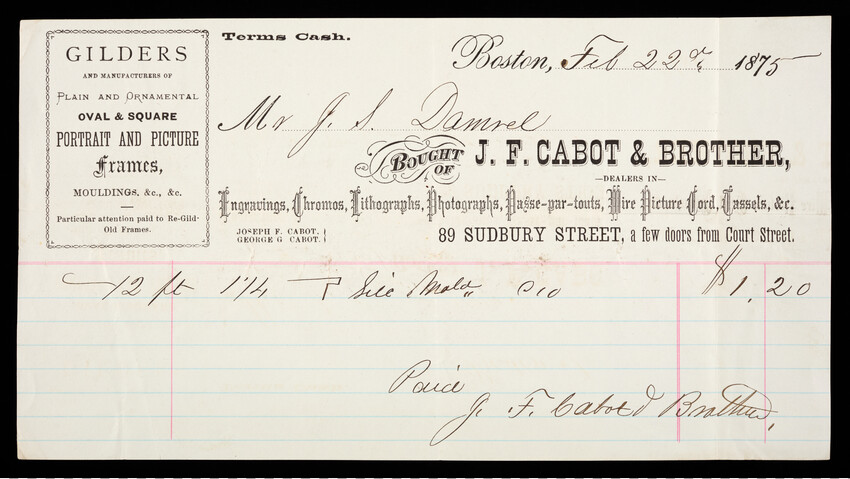 GILDERS
AND MANUFACTURERS OF
PLAIN AND ORNAMENTAL
OVAL & SQUARE
PORTRAIT AND PICTURE
Frames,
MOULDINGS, &c., &c.
Particular attention paid to Re-Gild-
Old Frames.
Terms Cash.
Boston, Feb 22d, 1875
Mr J. S. Damrel
BOUGHT OF J. F. CABOT & BROTHER,
—DEALERS IN—
Engravings, Chromos, Lithographs, Photographs, Passe-par-touts, Wire Picture Cord, Tassels, &c.
JOSEPH F. CABOT.
GEORGE G CABOT.
89 SUDBURY STREET, a few doors from Court Street.
12 ft 1 1/4 Mold 010 $1.20
Paid
J. F. Cabot & Brother,